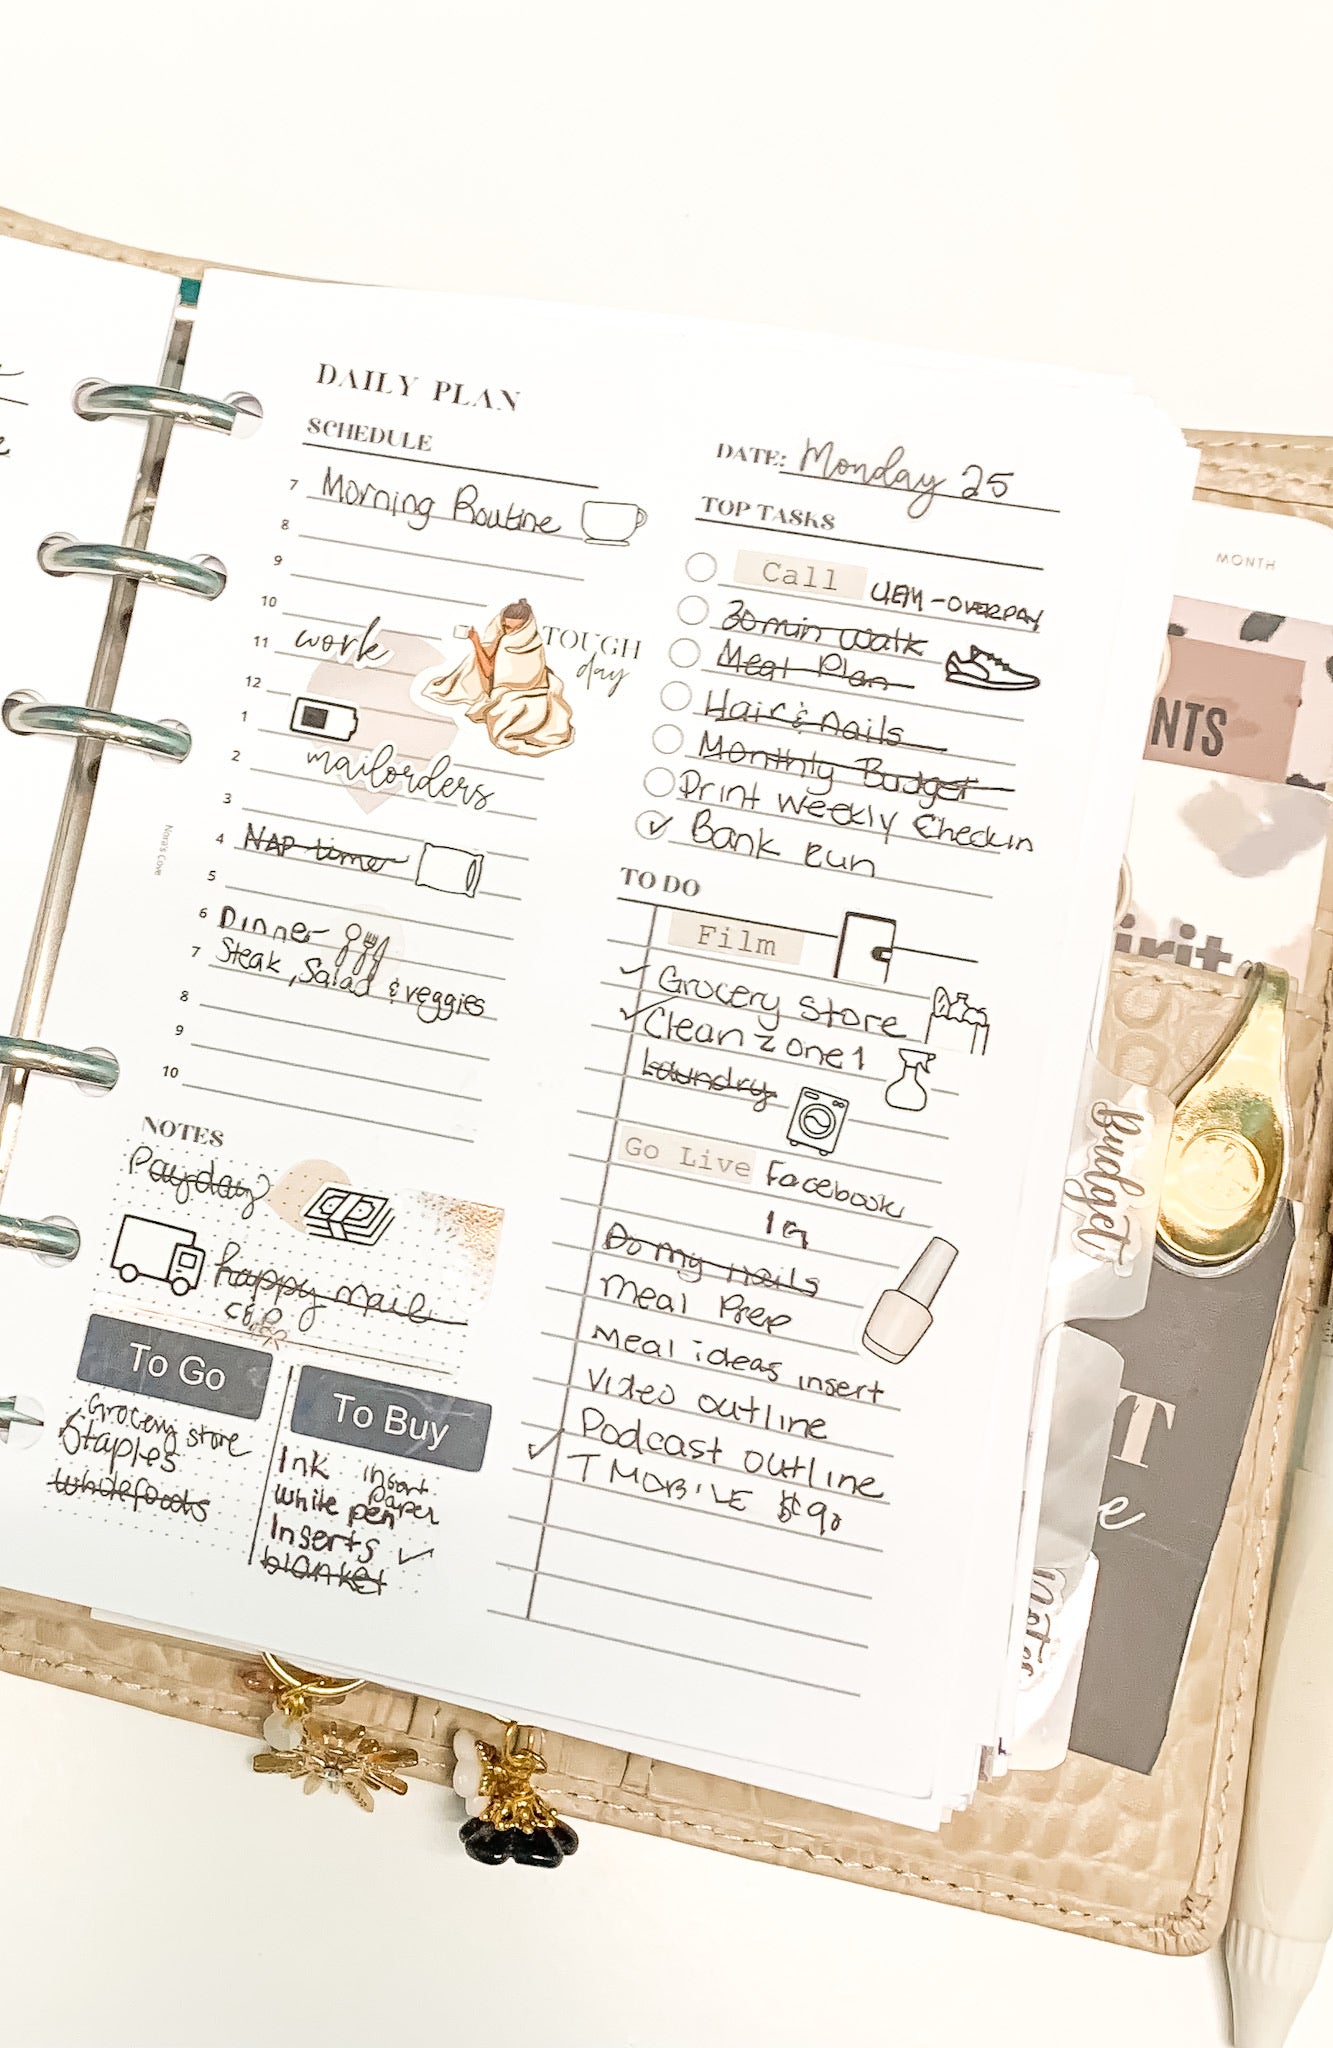 DAILY PLAN
SCHEDULE
7 Morning Routine
8
9
10
11 work
TOUGH
day
12
1
2 mailorders
3
4 NAP time
5
6 Dinner
7 Steak, Salad & veggies
8
9
10
Nora's Cove
NOTES
Payday
happy mail
To Go
Grocery store
Staples
Wholefoods
To Buy
Ink insert
paper
white pen
Inserts ✓
blanket
DATE: Monday 25
TOP TASKS
Call UEM - OVERPAY
30 min walk
Meal Plan
Hair & nails
Monthly Budget
Print weekly Checkin
✓ Bank run
TO DO
Film
✓ Grocery store
✓ Clean zone 1
Laundry
Go Live Facebook
IG
Do my nails
Meal Prep
Meal ideas insert
Video outline
Podcast outline
✓ T MOBILE $90
MONTH
NTS
irit
Budget
T
e
Notes